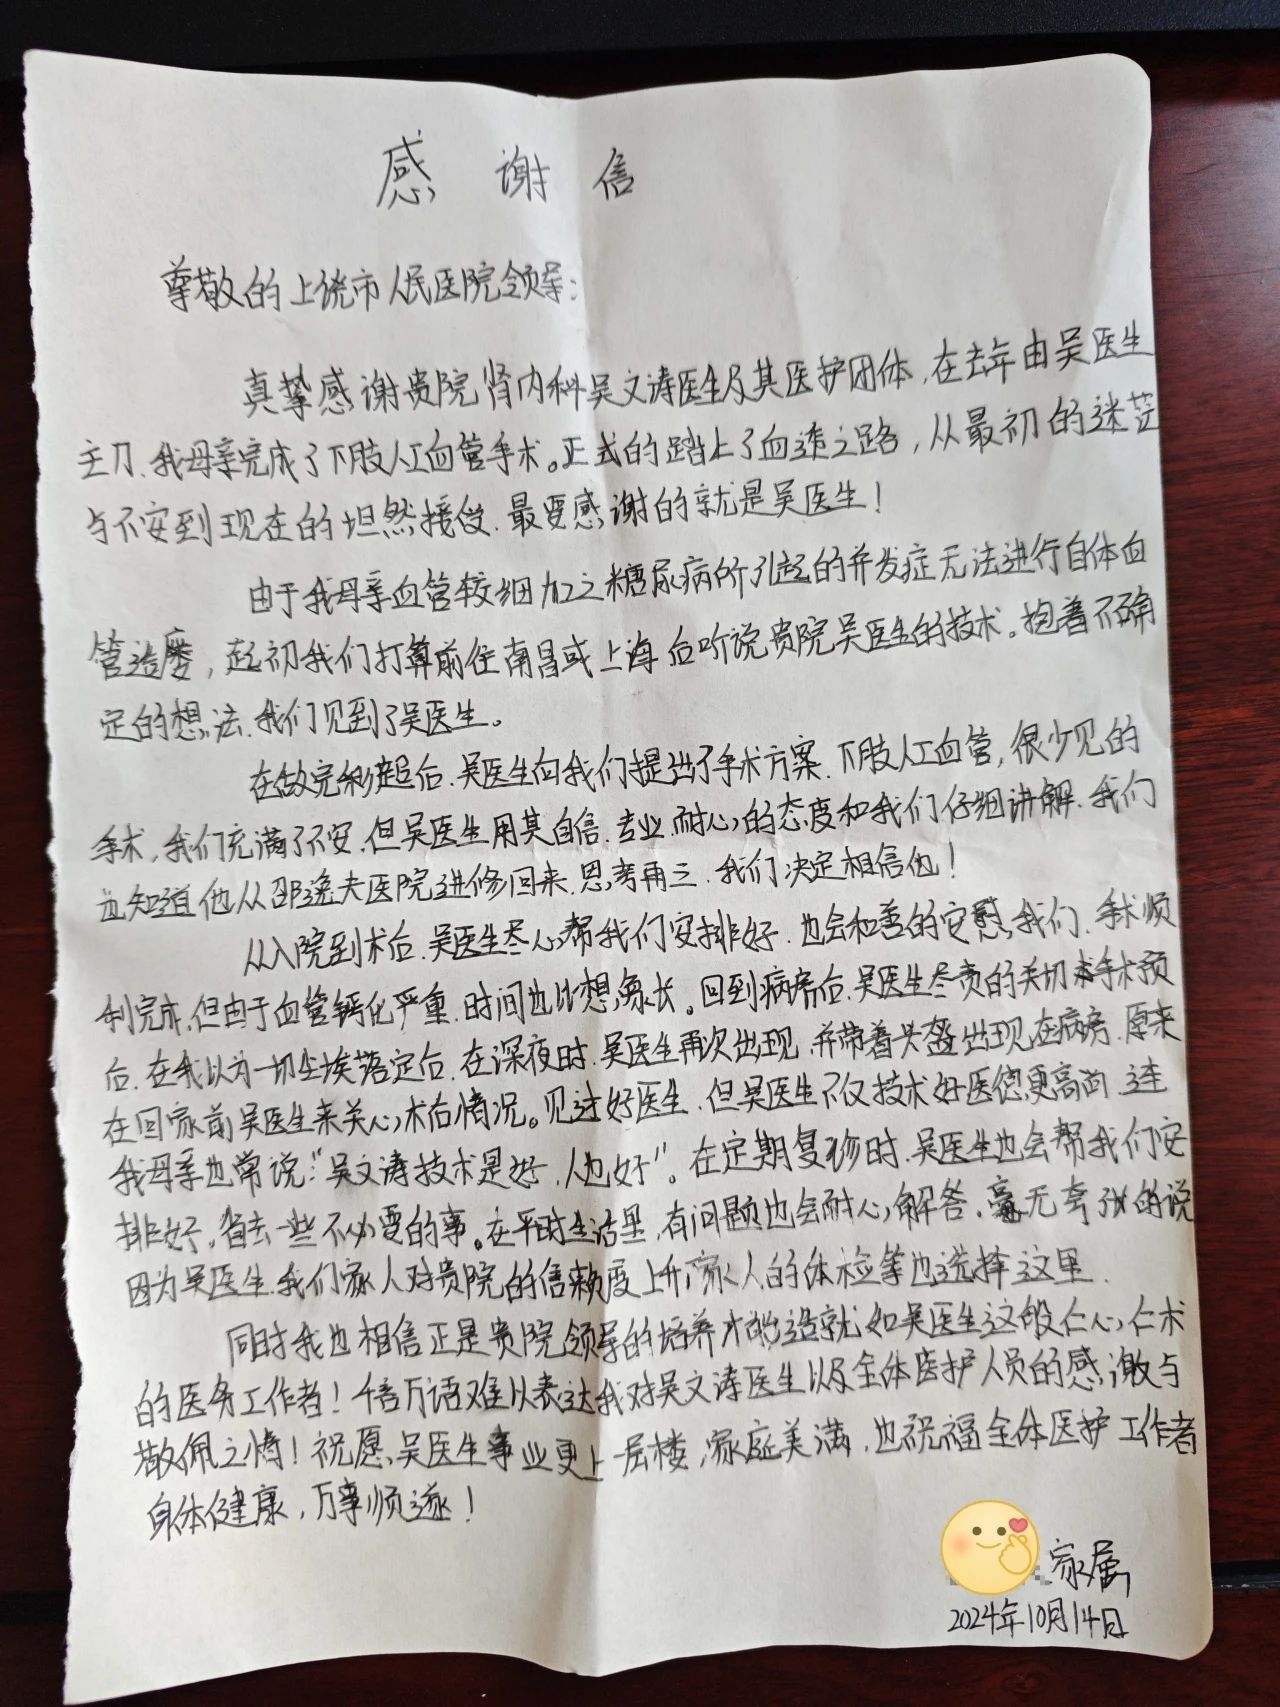 感谢信
尊敬的上饶市人民医院领导：
真挚感谢贵院肾内科吴文涛医生及其医护团体，在去年由吴医生
主刀，我母亲完成了下肢人工血管手术。正式的踏上了血透之路，从最初的迷茫
与不安到现在的坦然接受，最要感谢的就是吴医生！
由于我母亲血管较细加之糖尿病所引起的并发症无法进行自体血
管造瘘，起初我们打算前往南昌或上海后听说贵院吴医生的技术。抱着不确
定的想法，我们见到了吴医生。
在做完彩超后，吴医生向我们提出了手术方案，下肢人工血管，很少见的
手术，我们充满了不安，但吴医生用其自信，专业，耐心的态度和我们仔细讲解，我们
也知道他从邵逸夫医院进修回来，思考再三，我们决定相信他！
从入院到术后，吴医生尽心帮我们安排好，也会和善的安慰我们，手术顺
利完成，但由于血管钙化严重，时间也比想象长。回到病房后，吴医生尽责的关切手术预
后，在我以为一切尘埃落定后，在深夜时，吴医生再次出现，并带着头盔出现在病房，原来
在回家前吴医生来关心术后情况。见过好医生，但吴医生不仅技术好医德更高尚，连
我母亲也常说："吴文涛技术是好，人也好"。在定期复诊时，吴医生也会帮我们安
排好，省去一些不必要的事。在平时生活里，有问题也会耐心解答，毫无夸张的说
因为吴医生，我们家人对贵院的信赖度上升，家人的体检等也选择这里。
同时我也相信正是贵院领导的培养才能造就如吴医生这般仁心仁术
的医务工作者！千言万语难以表达我对吴文涛医生以及全体医护人员的感谢与
敬佩之情！祝愿吴医生事业更上一层楼，家庭美满，也祝福全体医护工作者
身体健康，万事顺遂！
家属
2024年10月14日